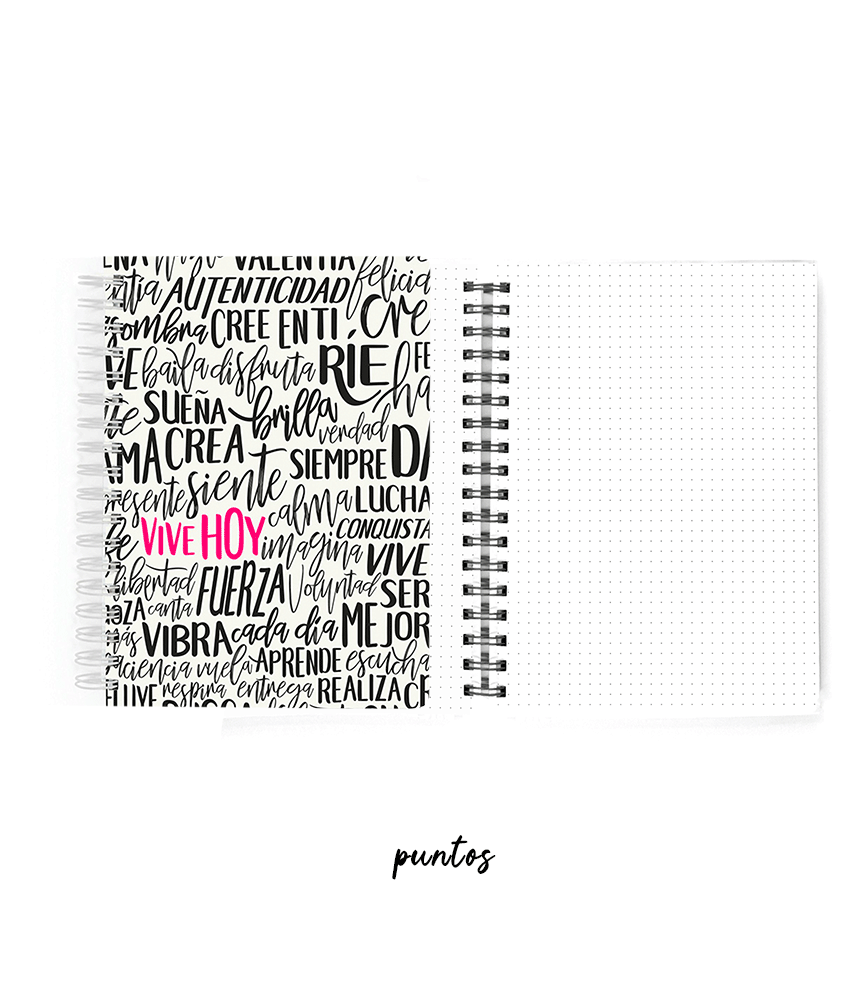 VALENTÍA
AUTENTICIDAD felicid
sombra CREE EN TI cre
baila disfruta RÍE
SUEÑA brilla verdad
AMA CREA SIEMPRE
presente siente calma LUCHA
VIVE HOY CONQUISTA
imagina VIVE
libertad FUERZA Voluntad SER
canta
más VIBRA cada día MEJOR
vuela APRENDE escucha
respira entrega REALIZA
puntos